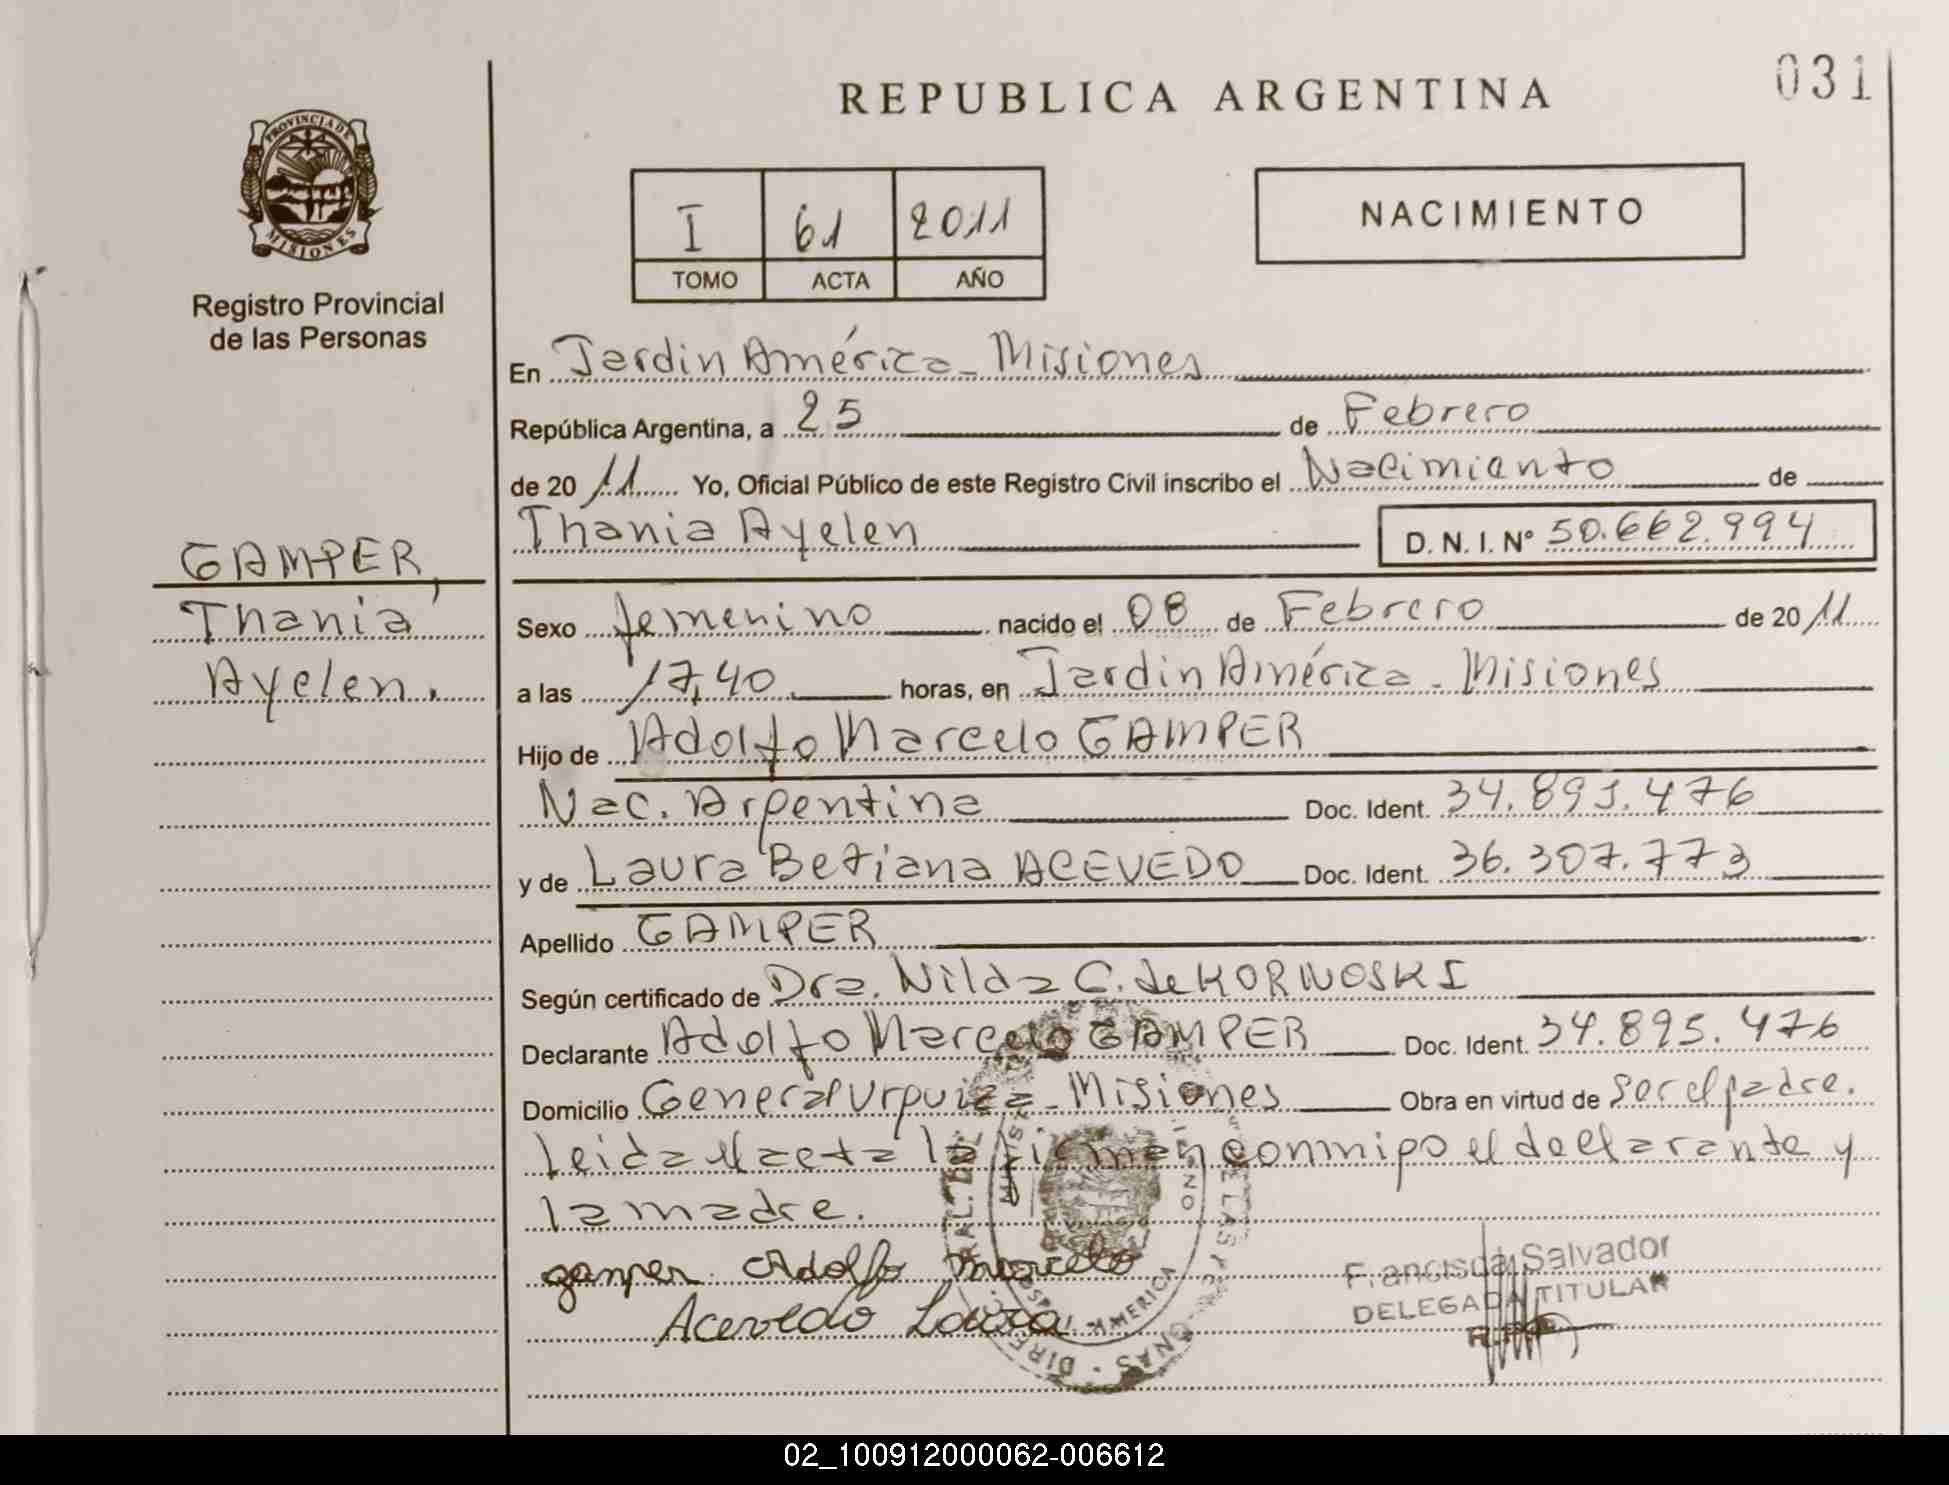 031
REPUBLICA ARGENTINA
PROVINCIA DE
MISIONES
Registro Provincial
de las Personas
I 61 2011
TOMO ACTA AÑO
NACIMIENTO
En Jardin América - Misiones
República Argentina, a 25 de Febrero
de 20 11 Yo, Oficial Público de este Registro Civil inscribo el Nacimiento de
Thania Ayelen D. N. I. Nº 50.662.994
GAMPER,
Thania
Ayelen.
Sexo femenino nacido el 08 de Febrero de 20 11
a las 17,40 horas, en Jardin América - Misiones
Hijo de Adolfo Marcelo GAMPER
Nac. Argentina Doc. Ident. 34.895.476
y de Laura Betiana ACEVEDO Doc. Ident. 36.307.773
Apellido GAMPER
Según certificado de Dra. Nilda C. de KORNOSKI
Declarante Adolfo Marcelo GAMPER Doc. Ident. 34.895.476
Domicilio General Urquiza - Misiones Obra en virtud de ser el padre.
Leida el acta la firman conmigo el declarante y
la madre.
gamper Adolfo Marcelo
Acevedo Laura
Francisca Salvador
DELEGADA TITULAR
02_100912000062-006612